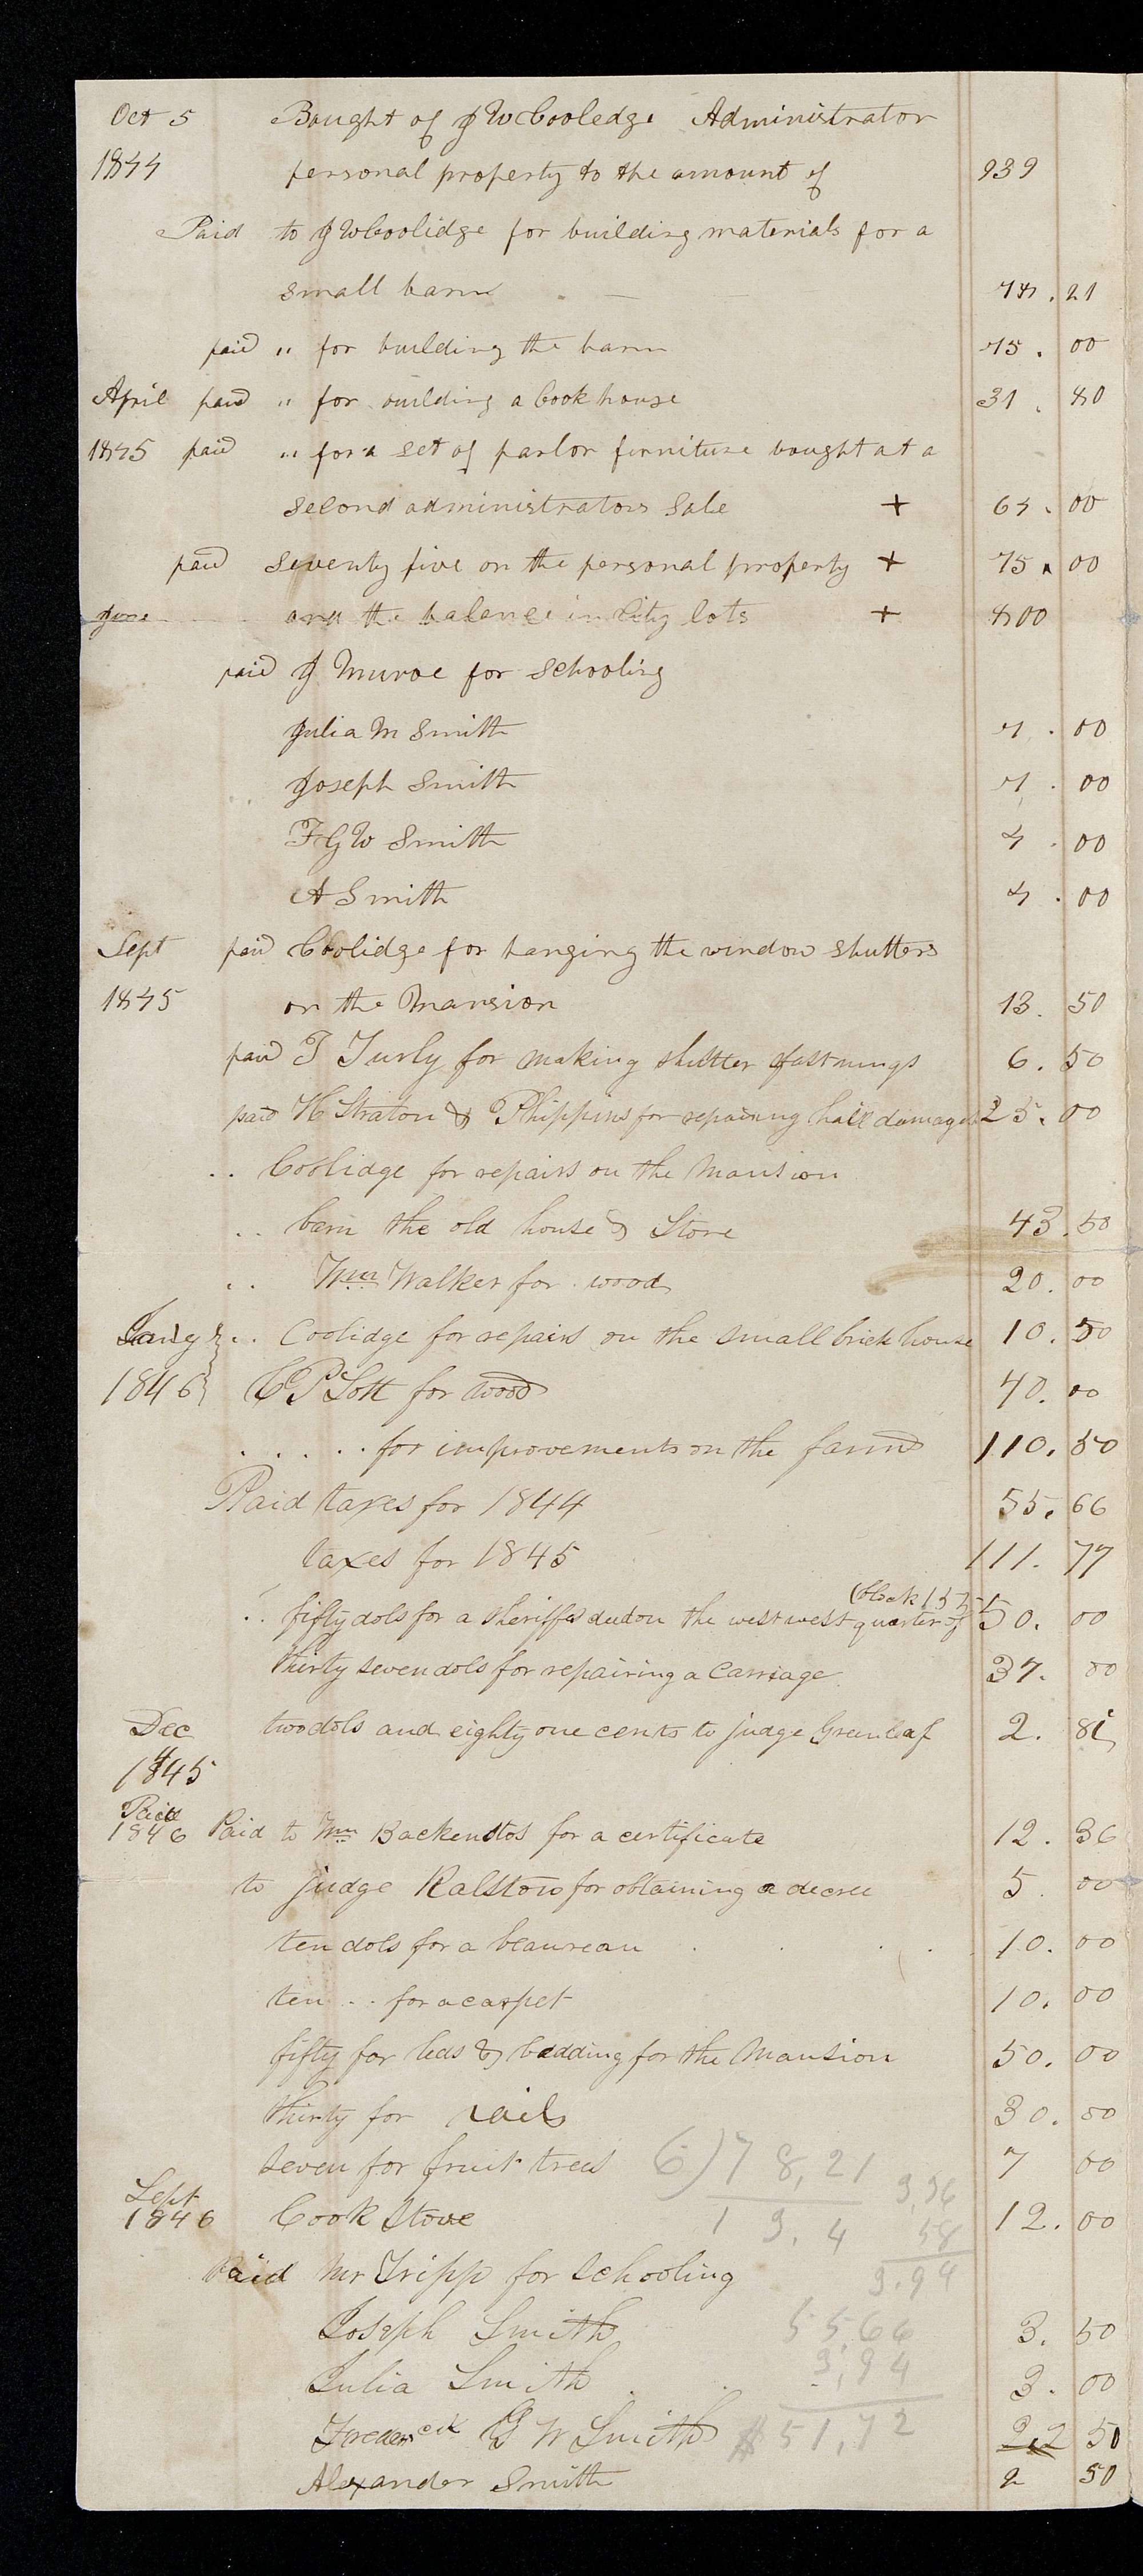 Oct 5 Bought of J W Cooledge Administrator
1844 personal property to the amount of 939
Paid to J W Coolidge for building materials for a
small barn 78.21
paid " for building the barn 75.00
April paid " for building a Cook house 31.80
1845 paid " for a set of parlor furniture bought at a
second administrators Sale + 64.00
paid seventy five on the personal property + 75.00
June and the balance in City lots + 800
paid J Munroe for schooling
Julia M Smith 7.00
Joseph Smith 7.00
F G W Smith 4.00
A Smith 4.00
Sept paid Coolidge for hanging the window shutters
1845 on the Mansion 13.50
paid T Turly for making shutter fastnings 6.50
paid H Straton & Phippins for repairing hail damages 25.00
.. Coolidge for repairs on the Mansion
.. barn the old house & Store 43.50
.. Wm Walker for wood 20.00
Jany .. Coolidge for repairs on the small brick house 10.50
1846 C P Lott for wood 40.00
. . . . . for improvements on the farm 110.50
Paid taxes for 1844 55.66
taxes for 1845 111.77
(block 155
.. fifty dols for a sheriffs deed on the west west quarter of 50.00
thirty seven dols for repairing a Carriage 37.00
Dec two dols and eighty one cents to judge Greenleaf 2.81
1845
Paid
1846 Paid to Wm Backenstos for a certificate 12.36
to judge Ralston for obtaining a decree 5.00
ten dols for a beaureau 10.00
ten .. for a carpet 10.00
fifty for beds & bedding for the Mansion 50.00
thirty for rails 30.00
seven for fruit trees 7 00
6)78,21
Sept 3,36
1846 Cook Stove 12.00
13.4 58
Paid Mr Tripp for schooling
3.94
Joseph Smith 3.50
55,66
Julia Smith 3.00
3,94
Frederick G W Smith 2 50
$51,72
Alexander Smith 2 50